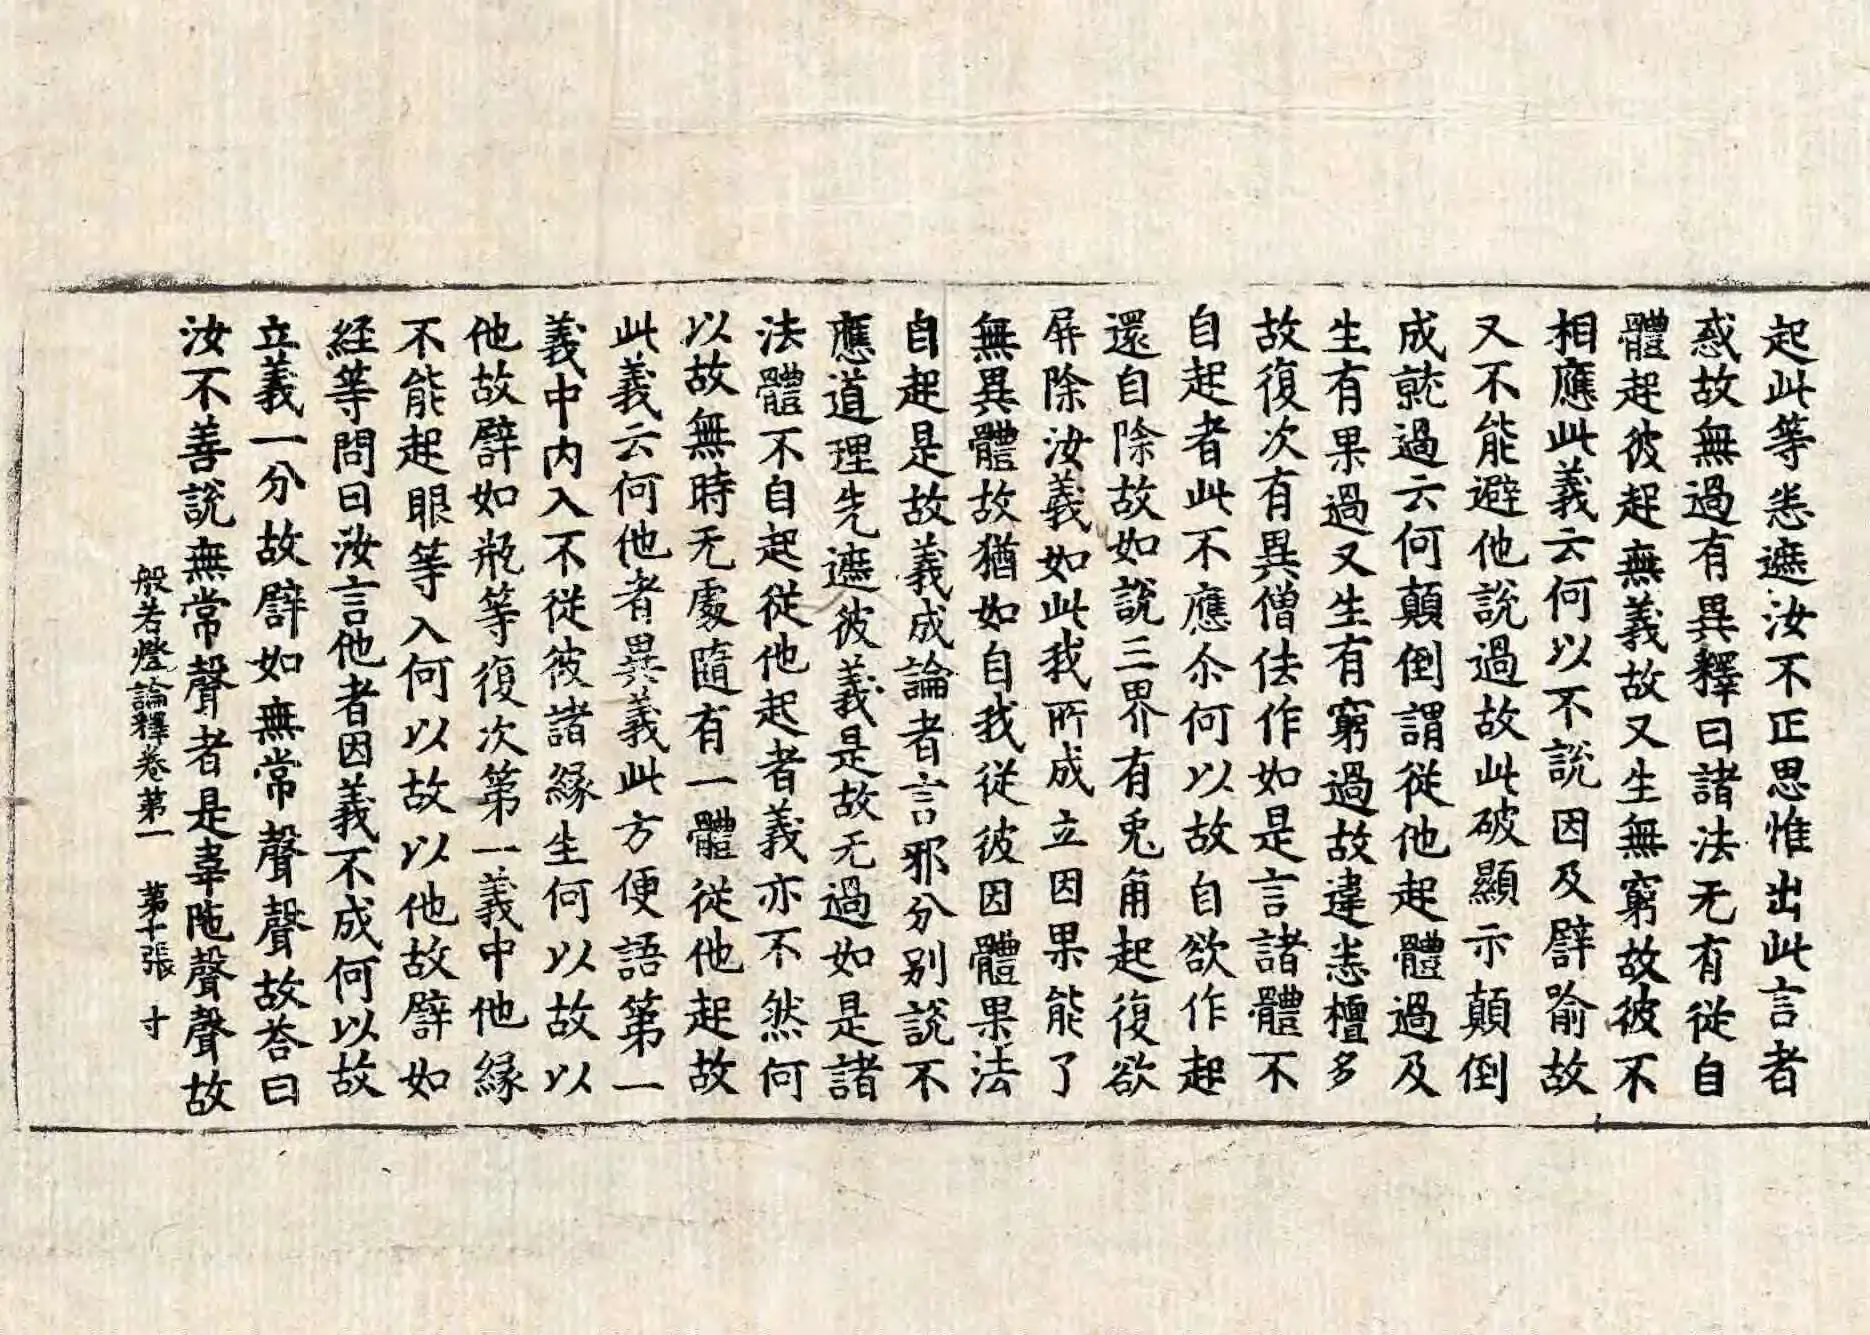 起此等恙遮汝不正思惟出此言者
惑故無過有異釋曰諸法无有從自
體起彼起無義故又生無窮故彼不
相應此義云何以不說因及譬喻故
又不能避他說過故此破顯示顛倒
成就過云何顛倒謂從他起體過及
生有果過又生有窮過故違恙檀多
故復次有異僧佉作如是言諸體不
自起者此不應尒何以故自欲作起
還自除故如說三界有兎角起復欲
屏除汝義如此我所成立因果能了
無異體故猶如自我從彼因體果法
自起是故義成論者言邪分別說不
應道理先遮彼義是故无過如是諸
法體不自起從他起者義亦不然何
以故無時无處隨有一體從他起故
此義云何他者異義此方便語第一
義中內入不從彼諸緣生何以故以
他故譬如瓶等復次第一義中他緣
不能起眼等入何以故以他故譬如
経等問曰汝言他者因義不成何以故
立義一分故譬如無常聲聲故荅曰
汝不善說無常聲者是韋陁聲聲故
般若燈論釋卷第一 第十張 寸